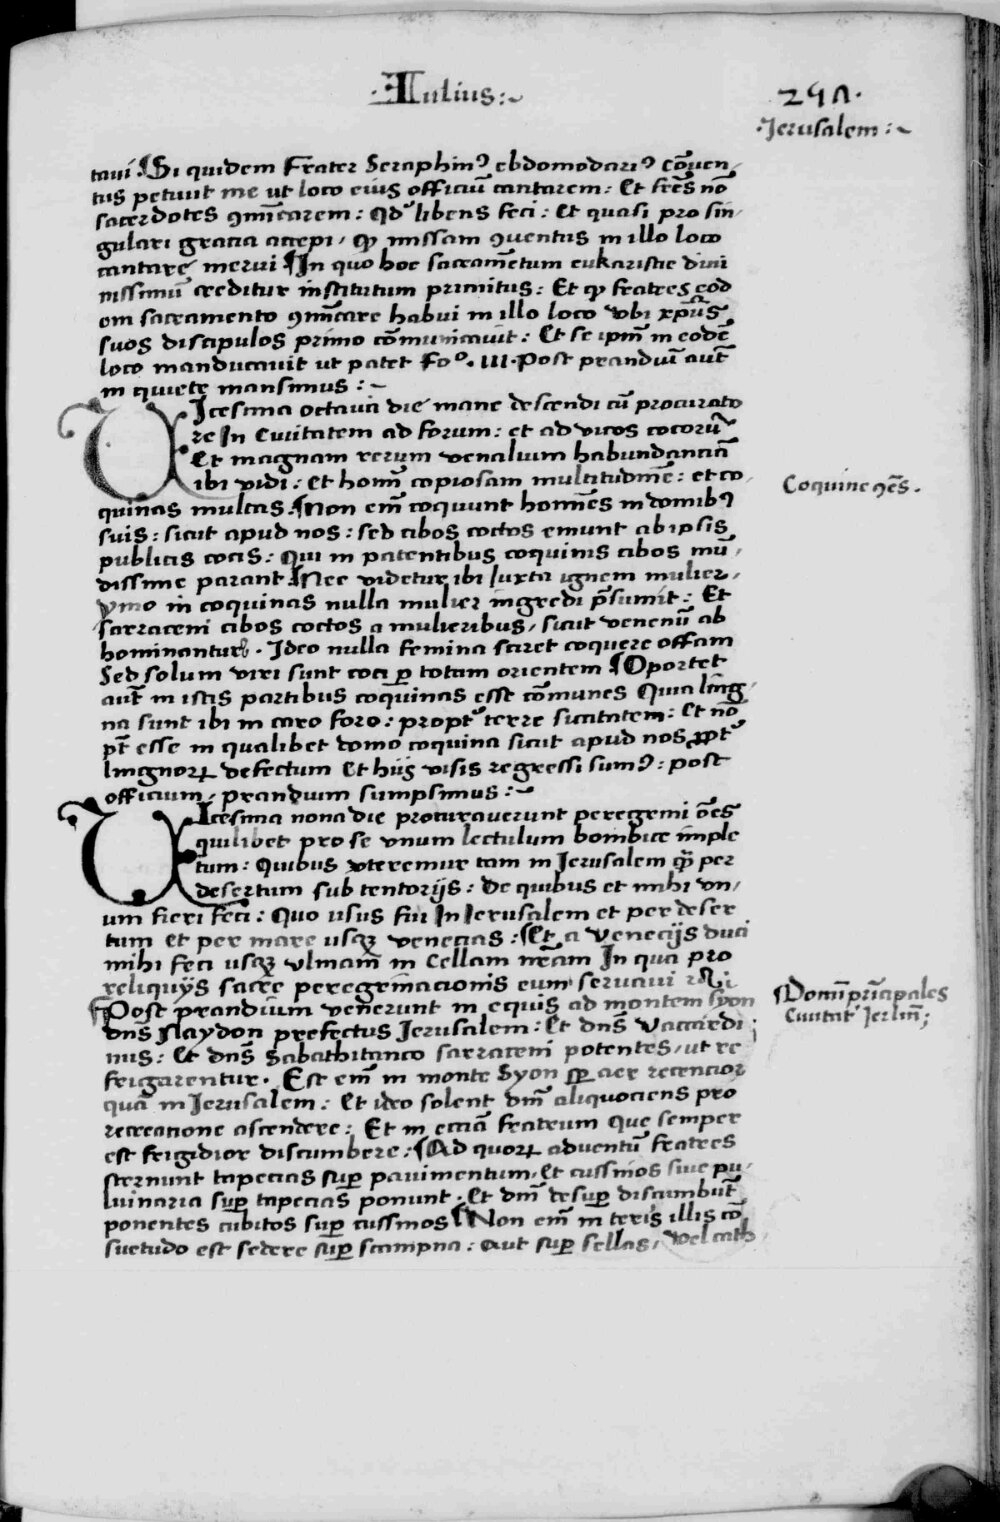 ·Iulius:~
297.
·Jerusalem:~
tavi ¶Si quidem Frater Seraphinꝰ ebdomodariꝰ cōven,
tus petivit me ut loco eius officiū cantarem: Et frēs nō
sacerdotes ꝯmīcarem: qd' libens feci: Et quasi pro sin,
gulari gracia accepi, ꝙ missam ꝯventus in illo loco
cantare merui ¶In quo hoc sacramētum eukaristie divi
nissimū creditur institutum primitus: Et ꝙ fratres eod
om sacramento ꝯmīcare habui in illo loco ubi xp̄us
suos discipulos primo cōmunicavit: Et se ipm̄ in eodē
loco manducavit ut patet Foº. III. Post prandiū aut̄
in quiete mansimus:~
VIcesima octava die mane descendi cū procurato
re In Civitatem ad forum: et ad vicos cocorū
Et magnam rerum venalium habundanciā
ibi vidi: Et hom̄ copiosam multitudinē: et co
Coquine ꝯēs.
quinas multas. ¶Non em̄ coquunt homīes in domibꝰ
suis: sicut apud nos: sed cibos coctos emunt ab ipsis
publicis cocis: Qui in patentibus coquinis cibos mū,
dissime parant ¶Nec videtur ibi Juxta ignem mulier,
ymo in coquinas nulla mulier ingredi p̄sumit: Et
sarraceni cibos coctos a mulieribus, sicut venenū ab
hominantur. Ideo nulla femina sciret coquere offam
Sed solum viri sunt coci ꝑ totum orientem ¶Oportet
aut̄ in istis partibus coquinas esse cōmunes Quia ling,
na sunt ibi in caro foro: propt' terre siccitatem: Et nō
pt̄ esse in qualibet domo coquina sicut apud nos ꝓpt'
lingnoꝝ defectum Et hijs visis regressi sumꝰ: post
officium, prandium sumpsimus:~
VIcesima nona die procuraverunt peregrini ōēs
quilibet pro se unum lectulum bombice imple
tum: Quibus uteremur tam in Jerusalem qꝫ per
desertum sub tentorijs: De quibus et mihi un,
um fieri feci: Quo usus fui In Jerusalem et per deser
tum et per mare usqꝫ venecias: ¶Et a Venecijs duci
mihi feci usqꝫ Ulmam in Cellam nr̄am In qua pro
reliquijs sacre peregrinacionis eum servavi
¶Post prandium venerunt in equis ad montem syon
¶Domī prīcipales
Civitat' Jerlm̄;
dn̄s Naydon prefectus Jerusalem: Et dn̄s Vaccardi
nus: Et dn̄s Sabathitanco sarraceni potentes, ut re
frigarentur. Est em̄ in monte Syon sꝑ aer recencior
quā in Jerusalem: Et ideo solent dm̄ aliquociens pro
recreatione ascendere: Et in ecciā fratrum que semper
est frigidior discumbere: ¶Ad quoꝝ adventū fratres
sternunt tapecias suꝑ pavimentum, Et cussinos sive pu,
luinaria suꝑ tapecias ponunt: Et dm̄ desuꝑ discumbūt
ponentes cubitos suꝑ cussinos ¶Non em̄ in teris illis cō
suetudo est sedere suꝑ scampna: aut suꝑ sellas, vel cath